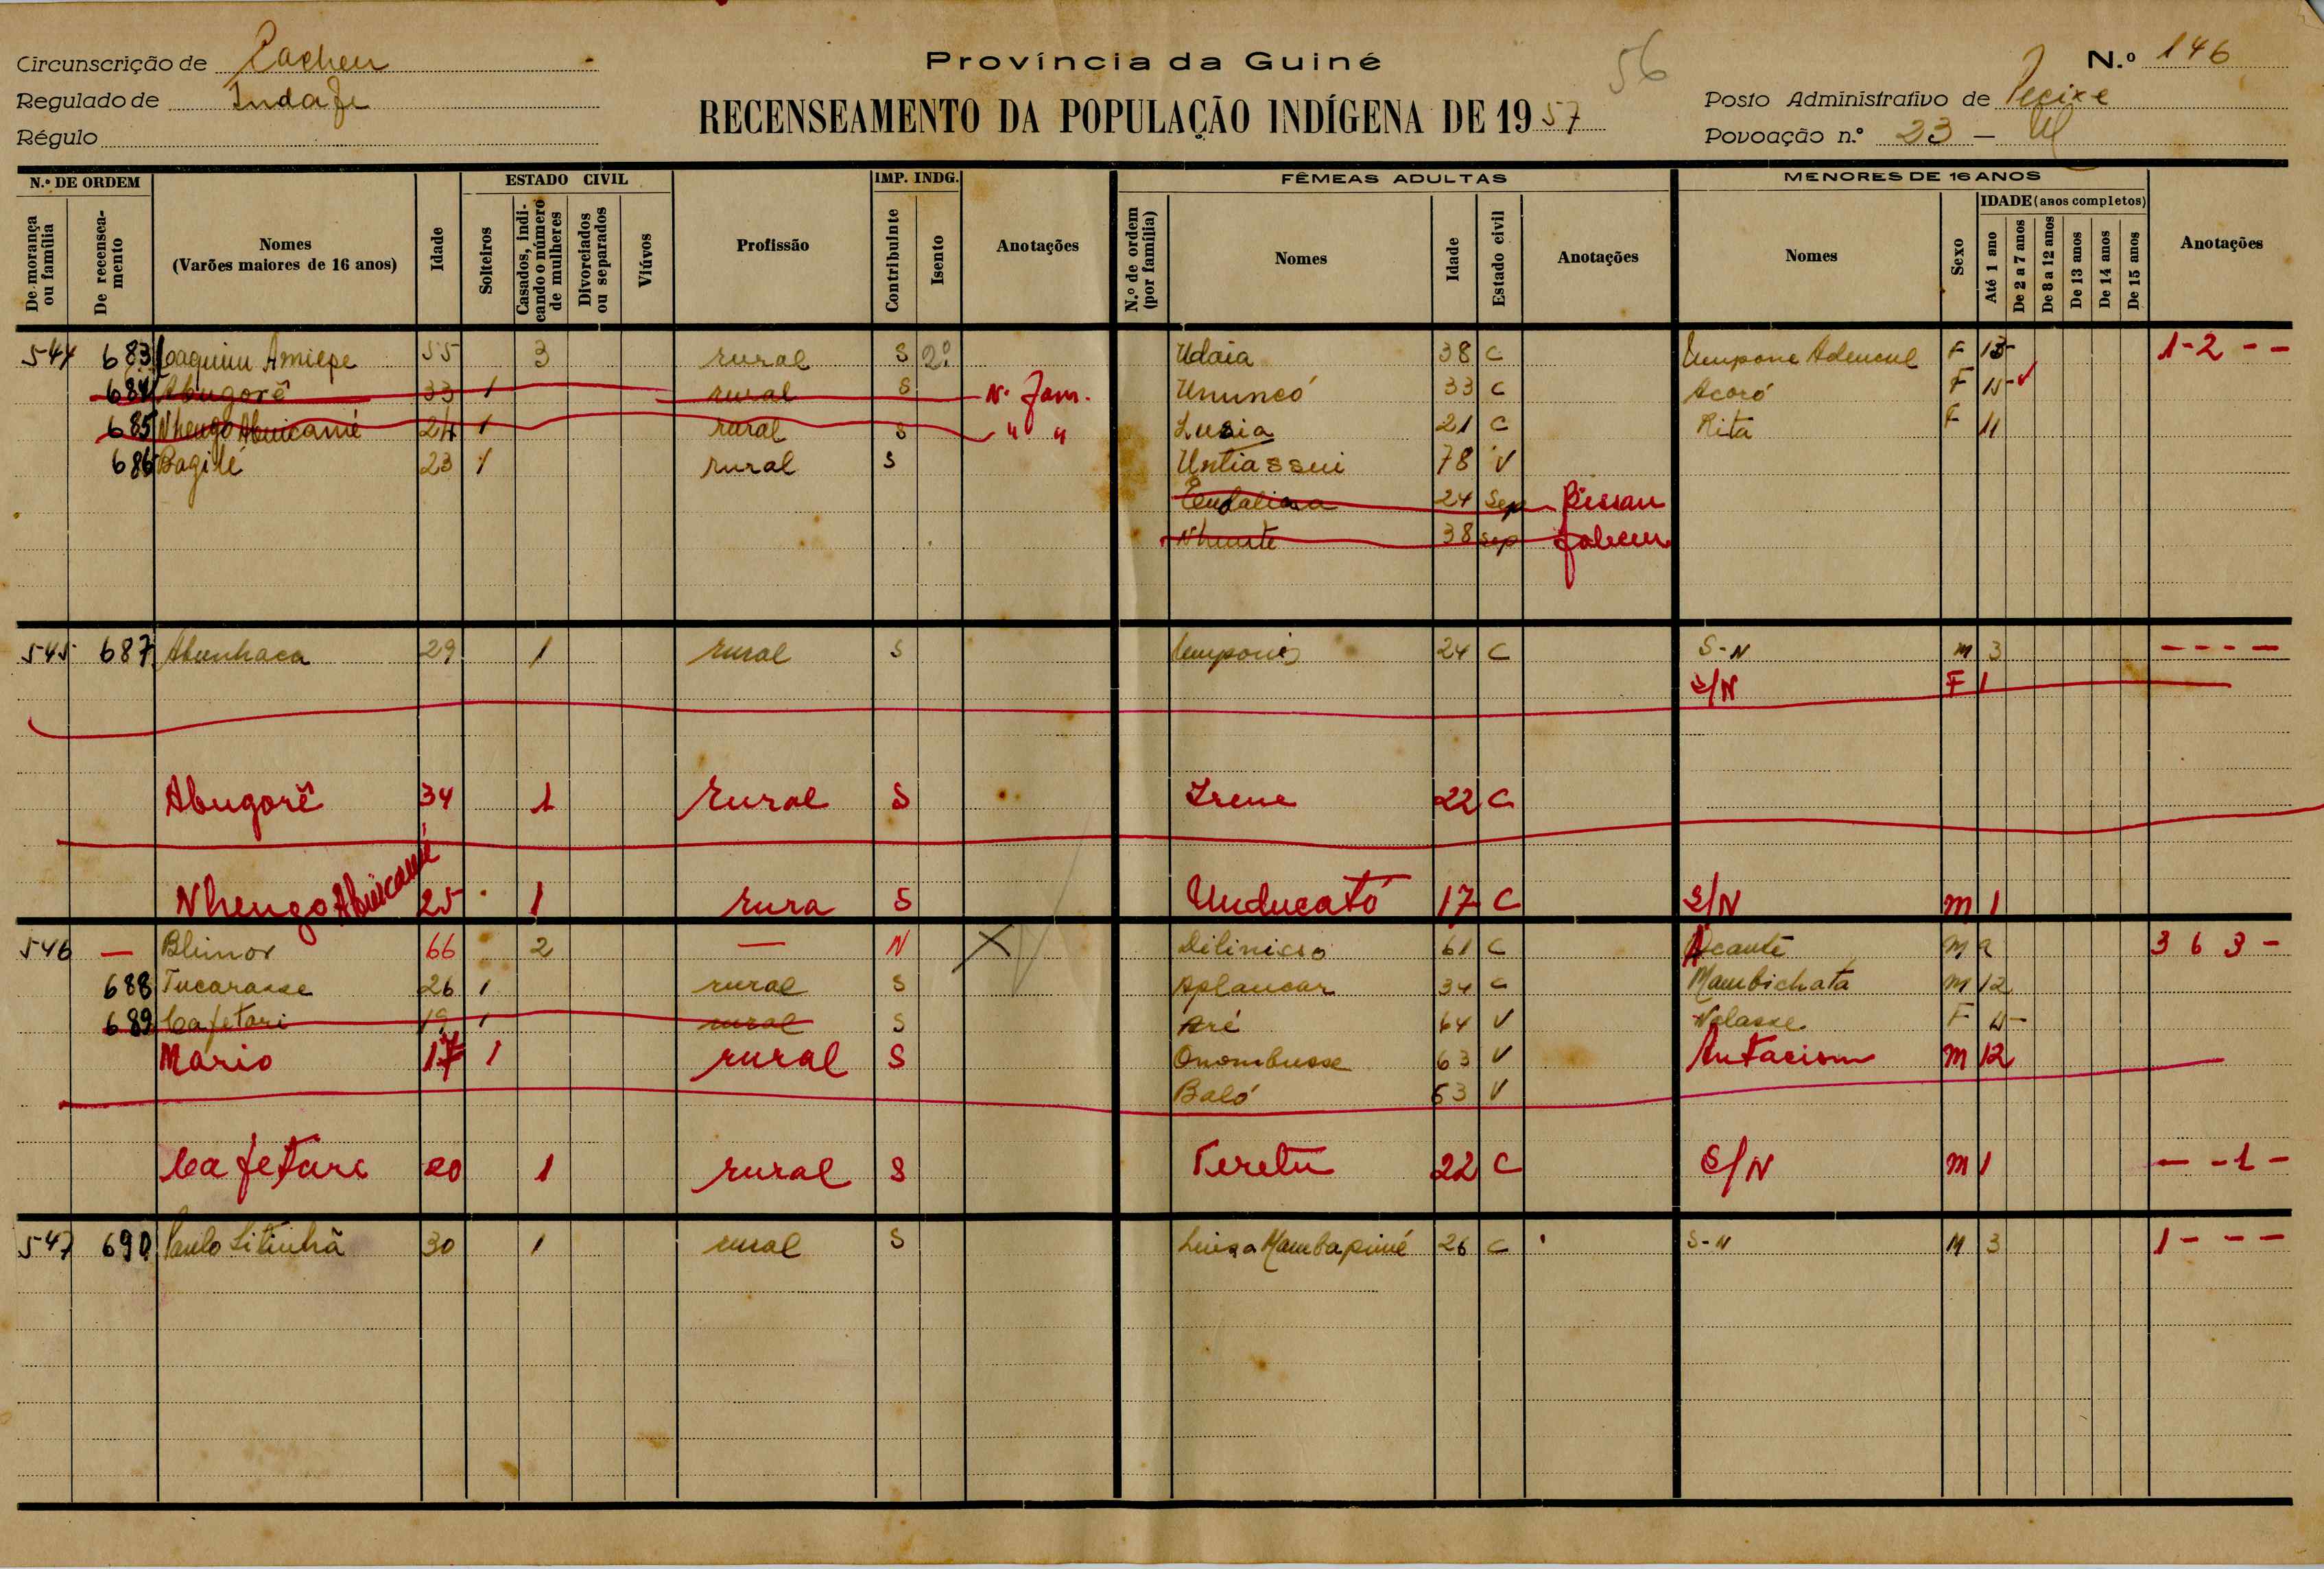 Circunscrição de Cacheu
Província da Guiné
56
N.º 146
Regulado de Indafe
RECENSEAMENTO DA POPULAÇÃO INDÍGENA DE 1957
Posto Administrativo de Pecixe
Régulo
Povoação n.º 23 —
N.º DE ORDEM
ESTADO CIVIL
IMP. INDG.
FÊMEAS ADULTAS
MENORES DE 16 ANOS
De morança ou família
De recenseamento
Nomes (Varões maiores de 16 anos)
Idade
Solteiros
Casados, indicando o número de mulheres
Divorciados ou separados
Viúvos
Profissão
Contribuinte
Isento
Anotações
N.º de ordem (por família)
Nomes
Idade
Estado civil
Anotações
Nomes
Sexo
IDADE (anos completos)
Até 1 ano
De 2 a 7 anos
De 8 a 12 anos
De 13 anos
De 14 anos
De 15 anos
Anotações
544 683 Joaquim Amiepe 55 3 rural S 2º Udaia 38 C Umpone F 13- 1-2 - -
684 Abugorê 33 1 rural S N. Fam. Ununcó 33 C Acoró F 11-
685 Nhengo Abuicamé 24 1 rural S " " Lusia 21 C Rita F 11
686 Bagilé 23 1 rural S Untiassui 78 V
24 Sep Bissau
Nhunte 38 Sep
545 687 Abunhaca 29 1 rural S 24 C S-N M 3 - - - -
S/N F 1
Abugorê 34 1 rural S Irene 22 C
Nhengo Abuicamé 25 1 rura S Unducató 17 C S/N M 1
546 — Blimor 66 2 — N Dilinisso 61 C Acanté M 3 6 3 -
688 Tucarasse 26 1 rural S Aplancar 34 C Mambichata M 12
689 Cafetari 19 1 rural S Aré 64 V Nalasse F 11-
Mario 17 1 rural S Onombusse 63 V M 12
Baló 63 V
Cafetari 20 1 rural S Teretu 22 C S/N M 1 - - 1 -
547 690 Paulo Litinhã 30 1 rural S Luisa Mambapimé 26 C S-N M 3 1 - - -